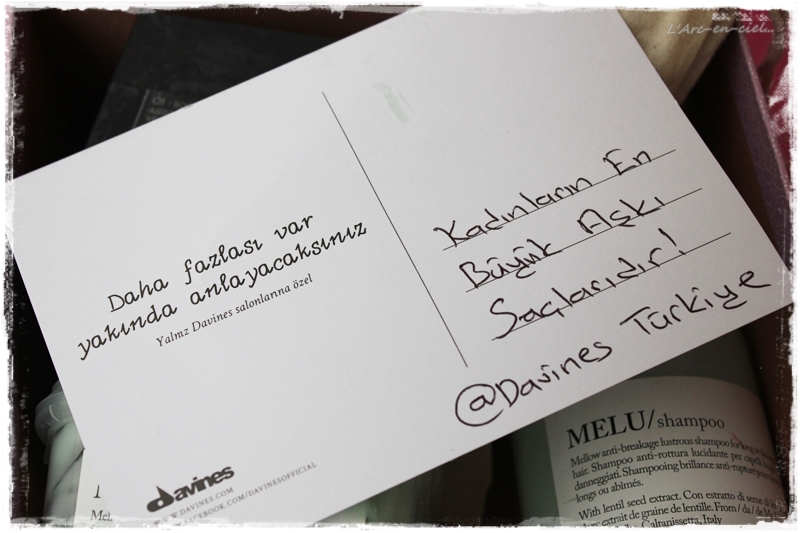 L'Arc-en-ciel...
Daha fazlası var
yakında anlayacaksınız
Yalnız Davines salonlarına özel
davines
WWW.DAVINES.COM
FACEBOOK.COM/DAVINESOFFICIAL
Kadınların En
Büyük Aşkı
Saçlarıdır!
@Davines Türkiye
MELU/shampoo
Mellow anti-breakage lustrous shampoo for long or
hair. Shampoo anti-rottura lucidante per capelli
danneggiati. Shampooing brillance anti-rupture pour
longs ou abîmés.
With lentil seed extract. Con estratto di seme di
extrait de graine de lentille. From / da / de
Caltanissetta, Italy